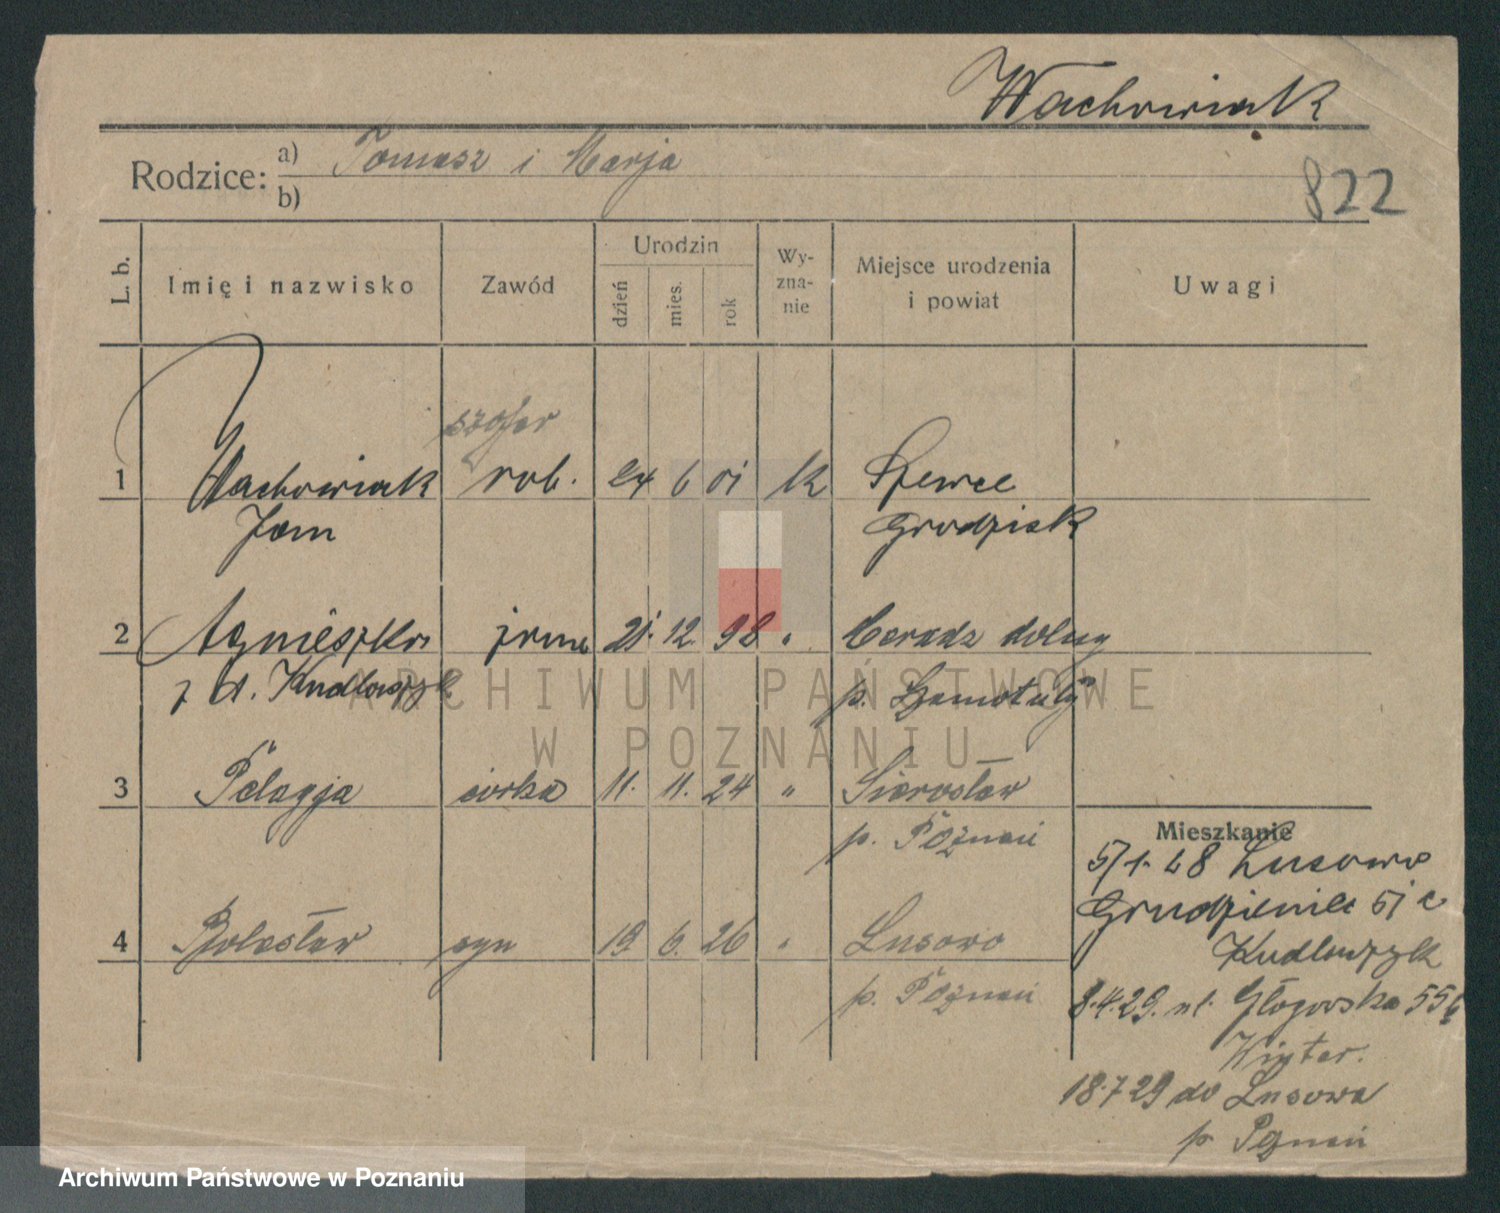 Wachowiak
Rodzice: a) Tomasz i Marja
b)
822
L. b. Imię i nazwisko Zawód Urodzin dzień mies. rok Wy-zna-nie Miejsce urodzenia i powiat Uwagi
szofer
1 Wachowiak rob. 24 6 01 k Szewce
Jan Grodzisk
2 Agnieszka żona 21. 12. 98 " Ceradz dolny
z d. Kudlaszyk p. Szamotuły
3 Pelagja córka 11. 11. 24 " Sierosław
p. Poznań
4 Bolesław syn 19 6. 26 " Lusowo
p. Poznań
Mieszkanie
5/1. 28 Lusowo
Grudzieniec 51 c
Kudlaszyk
8.4.29. ul. Głogowska 55
Winter.
18.7 29 do Lusowa
p. Poznań
ARCHIWUM PAŃSTWOWE
W POZNANIU
Archiwum Państwowe w Poznaniu